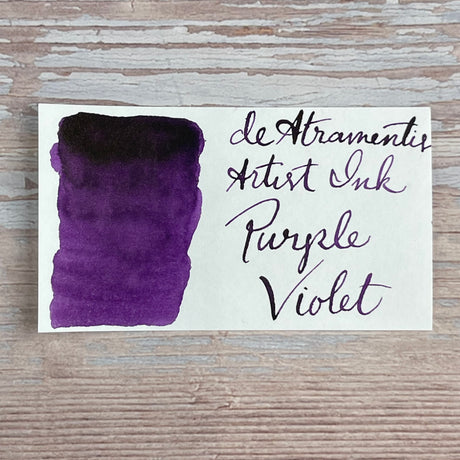 de Atramentis
Artist Ink
Purple
Violet